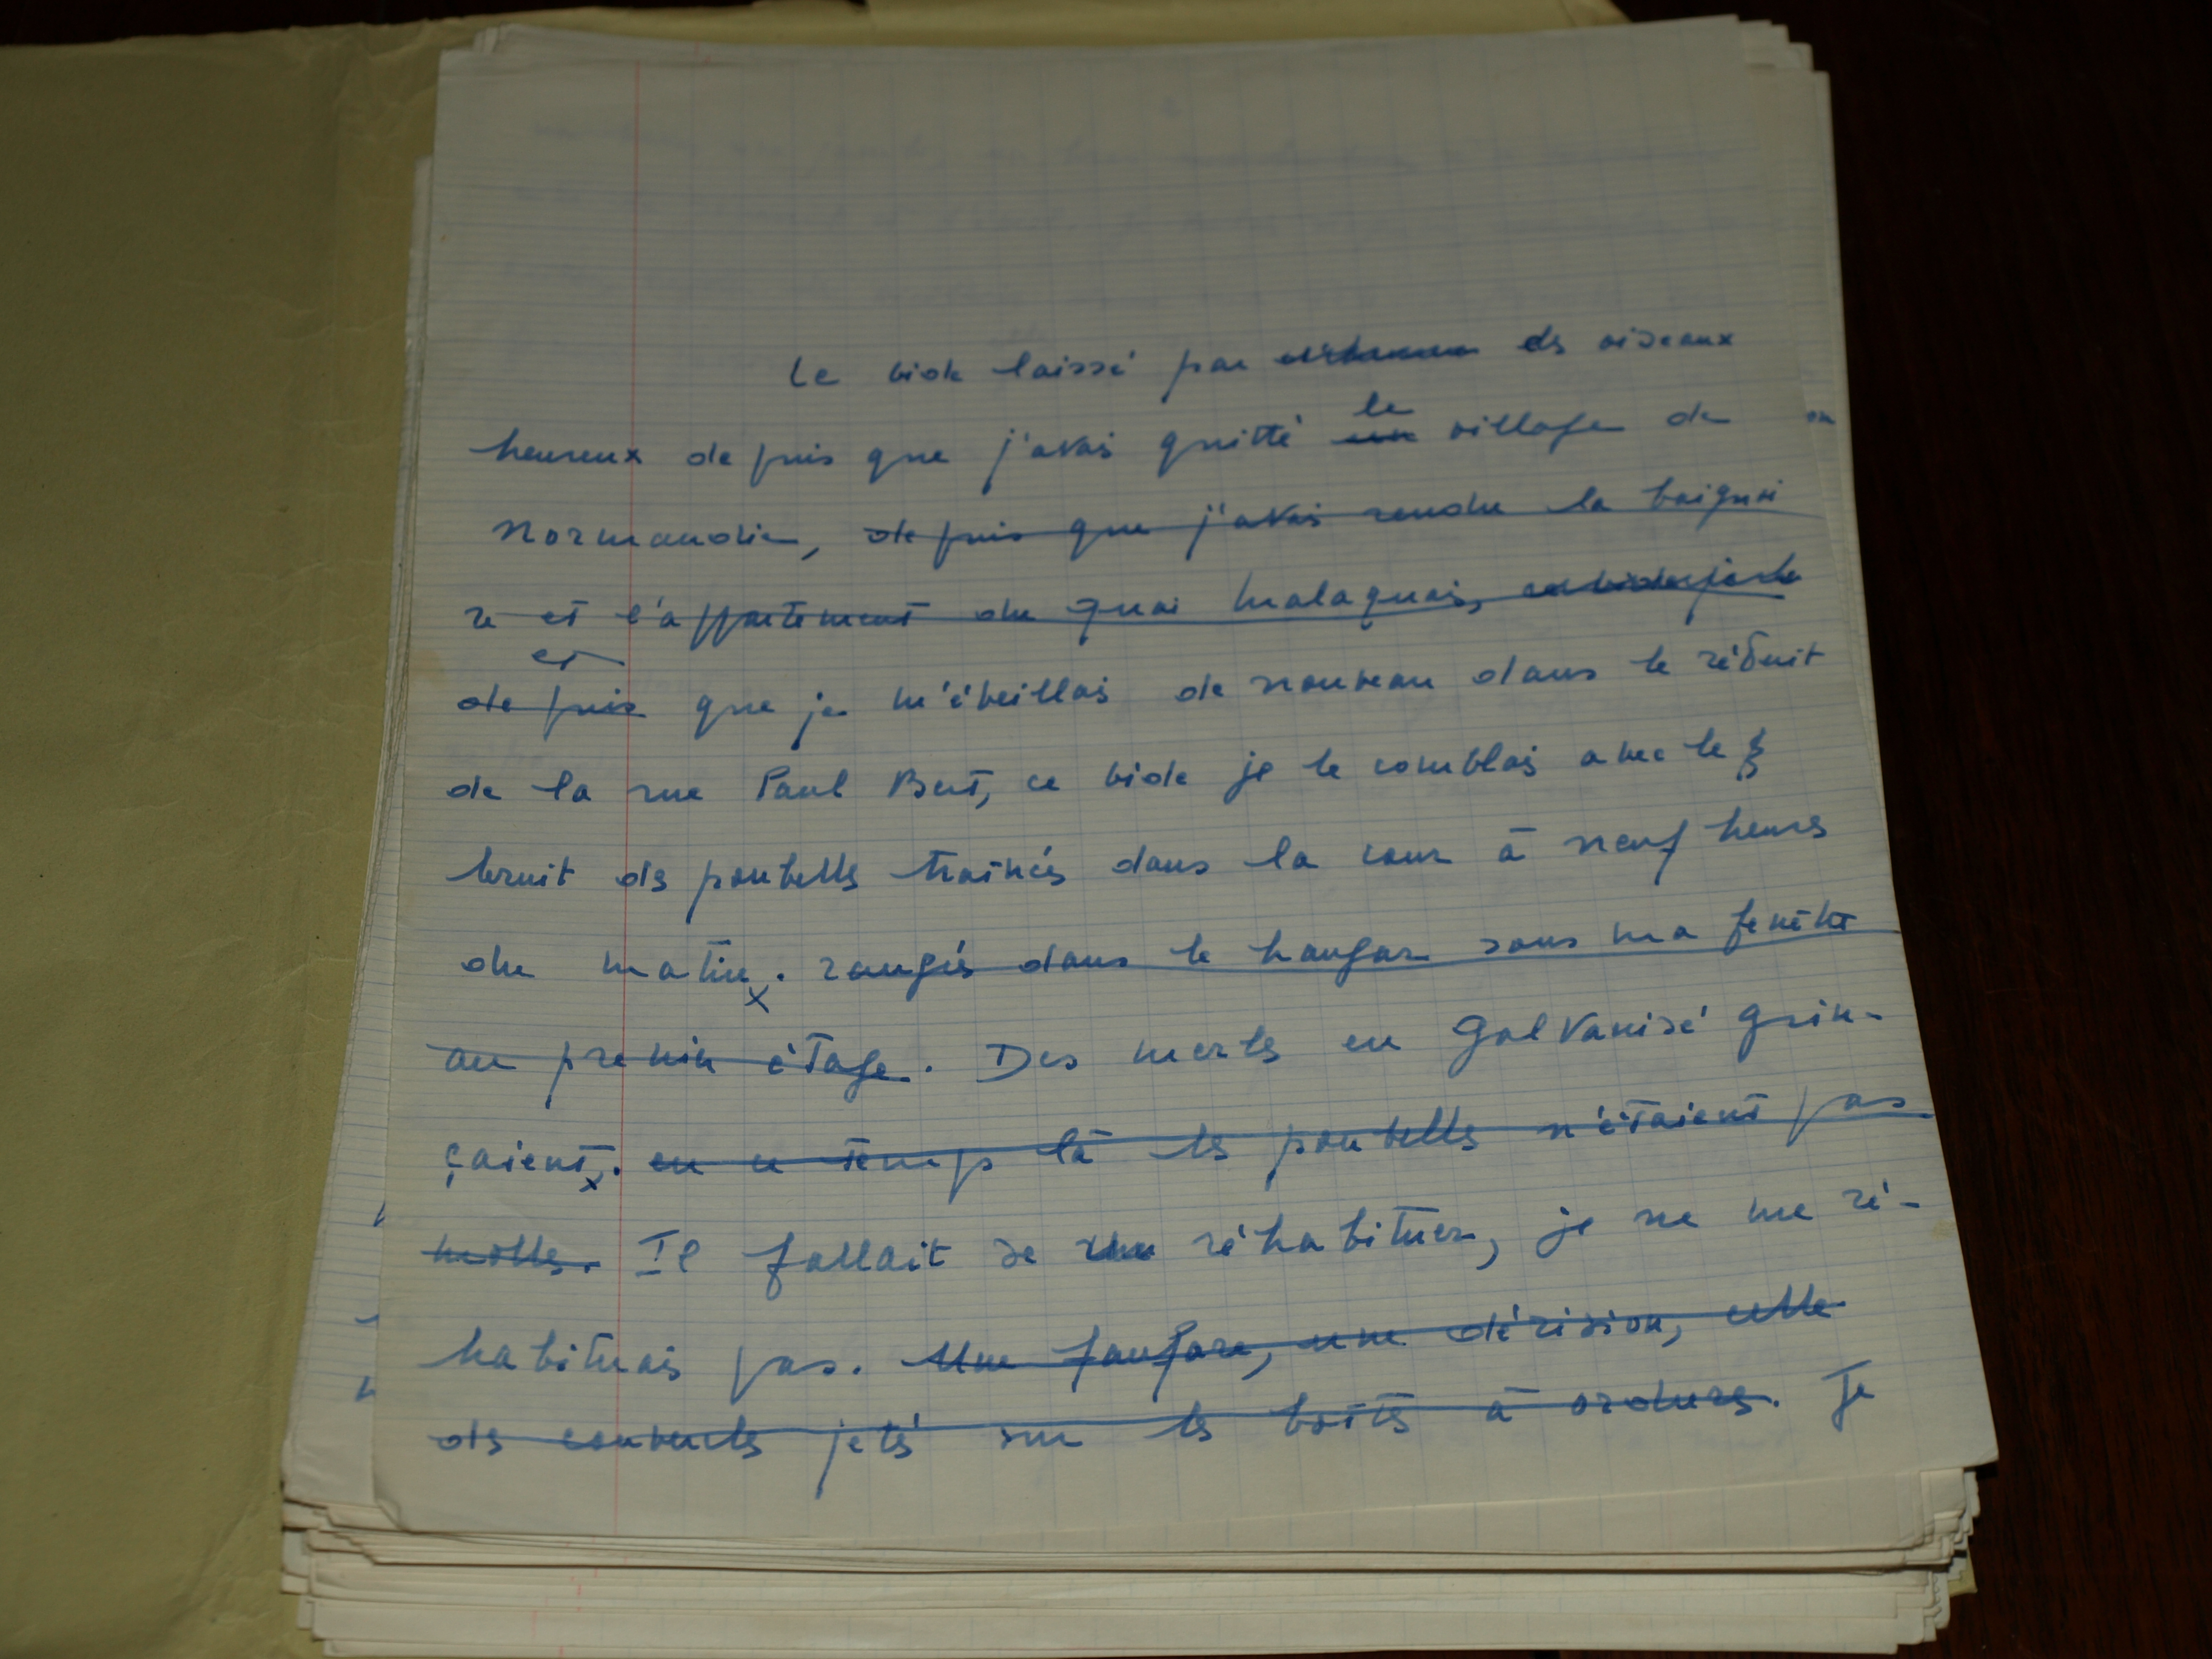 Le vide laissé par des oiseaux
le
heureux depuis que j'avais quitté un village de
Normandie, depuis que j'avais rendu la baignoi
re et l'appartement du quai Malaquais,
et
depuis que je m'éveillais de nouveau dans le réduit
de la rue Paul Bert, ce vide je le comblais avec le
bruit des poubelles traînées dans la cour à neuf heures
du matin. rangées dans le hangar sous ma fenêtre
au premier étage. Des merles en galvanisé grin-
çaient. en ce temps là les poubelles n'étaient pas
molles. Il fallait se réhabituer, je ne me ré-
habituais pas. Une fanfare, une dérision, celle
des couvercles jetés sur les boîtes à ordures. Je